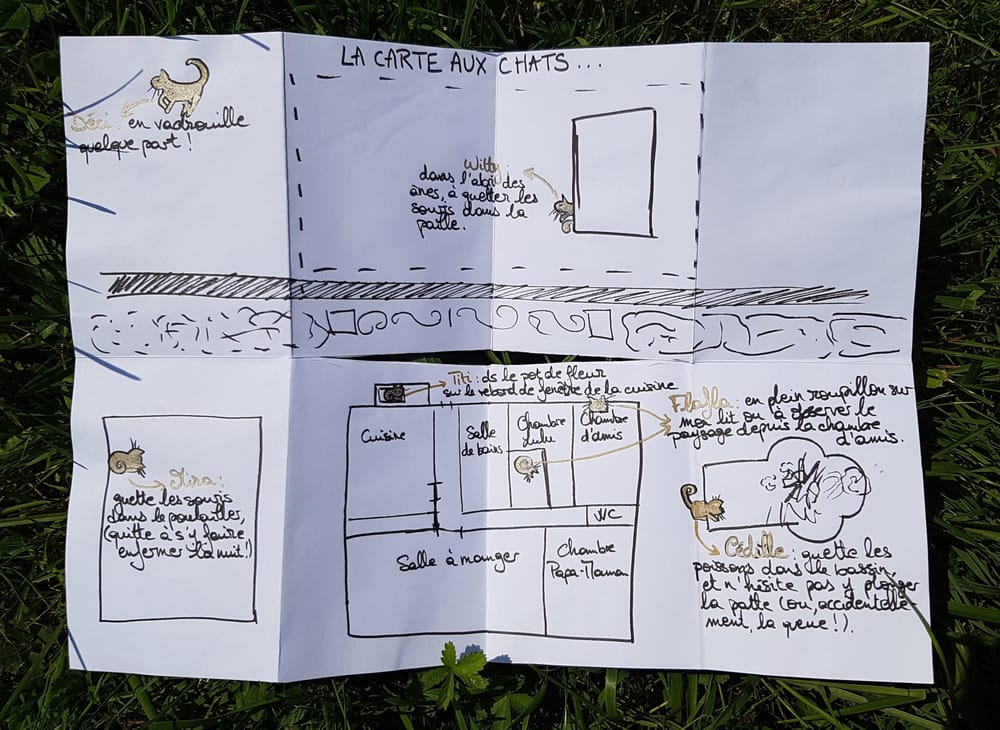 LA CARTE AUX CHATS...
Déci : en vadrouille
quelque part !
Witty
dans l'abri des
ânes, à guetter les
souris dans la
paille.
Titi : ds le pot de fleur
sur le rebord de fenêtre de la cuisine
Flafla : en plein roupillon sur
mon lit ou à observer le
paysage depuis la chambre
d'amis.
Cuisine
Salle
de bains
Chambre
Lulu
Chambre
d'amis
WC
Salle à manger
Chambre
Papa-Maman
guette les souris
dans le poulailler,
(quitte à s'y faire
enfermer la nuit !)
Cédille : guette les
poissons dans le bassin,
et n'hésite pas y plonger
la patte (ou, accidentelle
ment, la queue !).